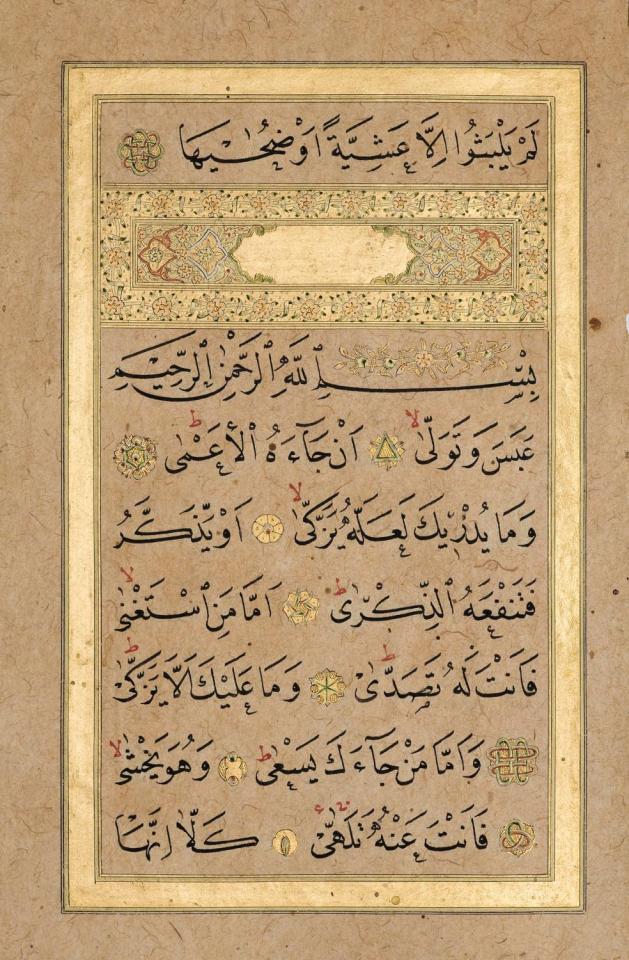 لَمْ يَلْبَثُوا اِلَّا عَشِيَّةً اَوْ ضُحٰيهَا
بِسْمِ اللّٰهِ الرَّحْمٰنِ الرَّحِيمِ
عَبَسَ وَتَوَلّٰى لا اَنْ جَٓاءَهُ الْاَعْمٰى ط
وَمَا يُدْرٖيكَ لَعَلَّهُ يَزَّكّٰى لا اَوْ يَذَّكَّرُ
فَتَنْفَعَهُ الذِّكْرٰى ط اَمَّا مَنِ اسْتَغْنٰى لا
فَاَنْتَ لَهُ تَصَدّٰى ط وَمَا عَلَيْكَ اَلَّا يَزَّكّٰى ط
وَاَمَّا مَنْ جَٓاءَكَ يَسْعٰى ط وَهُوَ يَخْشٰى لا
فَاَنْتَ عَنْهُ تَلَهّٰى كَلَّٓا اِنَّهَا